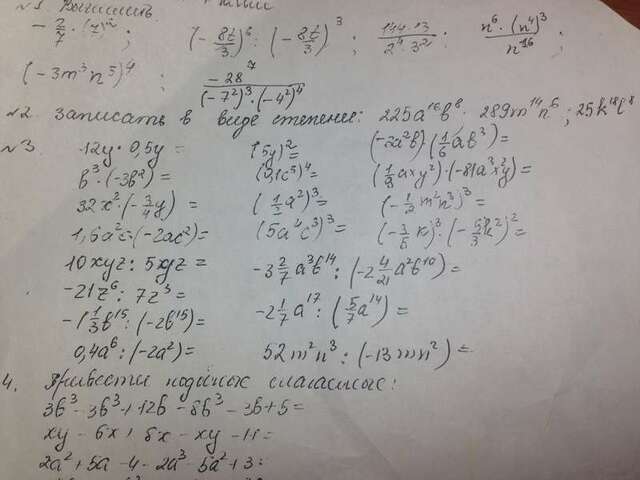 №1. Вычислить
- 2/7 · ; (- 8t/3)⁶ : (- 8t/3)³ ; 144·13 / 2⁴·3² ; n⁶·(n⁴)³ / n¹⁶
(-3m³n⁵)⁴ ; -28⁷ / (-7²)³·(-4²)⁴
№2. Записать в виде степени: 225a¹⁶b⁸ · 289m¹⁴n⁶ ; 25k¹⁸l⁸
№3. 12y · 0,5y = (5y)² = (-2a²b)·(1/6 ab³) =
b³·(-3b²) = (0,1c⁵)⁴ = (1/9 axy²)·(-81a³x²y) =
32x²·(-3/4 y) = (1/2 a²)³ = (-1/2 m²n³)³ =
1,6a²c·(-2ac²) = (5a⁴c³)³ = (-3/5 k)³·(-5/3 k²)² =
10xyz : 5xyz = -3 2/7 a³b¹⁴ : (-2 4/21 a²b¹⁰) =
-21z⁶ : 7z³ = -2 1/7 a¹⁷ : (5/7 a¹⁴) =
-1 1/3 b¹⁵ : (-2b¹⁵) =
0,4a⁶ : (-2a²) = 52m²n³ : (-13mn²) =
4. Привести подобных слагаемых:
3b³ - 3b³ + 12b - 8b³ - 3b + 5 =
xy - 6x + 8x - xy - 11 =
2a² + 5a - 4 - 2a³ - 5a² + 3 =